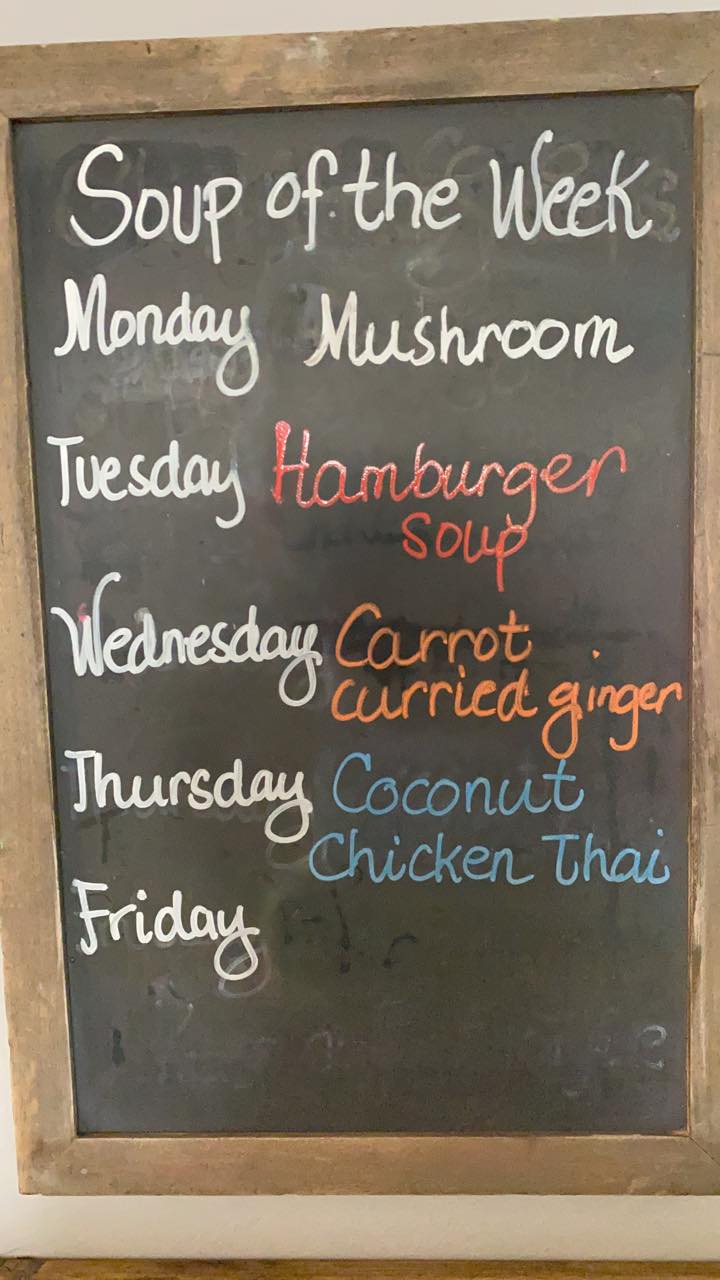 Soup of the Week
Monday Mushroom
Tuesday Hamburger
soup
Wednesday Carrot
curried ginger
Thursday Coconut
Chicken Thai
Friday